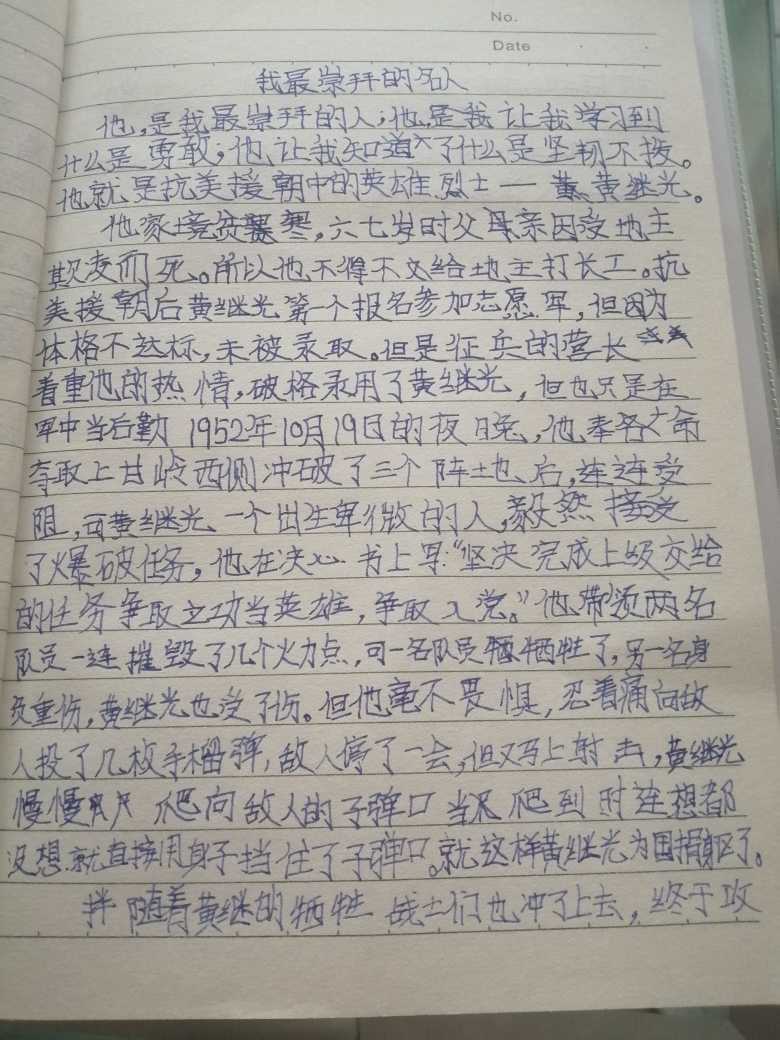 No.
Date
我最崇拜的名人
他,是我最崇拜的人;他,是我让我学习到
什么是勇敢;他,让我知道了什么是坚韧不拨。
他就是抗美援朝中的英雄烈士一黄继光。
他家境贫寒,六七岁时父母亲因受地主
欺凌而死。所以他不得不文给地主打长工。抗
美援朝后黄继光第一个报名参加志愿军,但因为
体格不达标,未被录取。但是征兵的营长
看重他的热情,破格录用了黄继光,但也只是在
军中当后勤 1952年10月19日的夜晚,他奉命
夺取上甘岭西侧冲破了三个阵地后,连连受
阻,可黄继光一个出生卑微的人,毅然接受
了爆破任务,他在决心书上写"坚决完成上级交给
的任务争取立功当英雄,争取入党。"他带领两名
队员一连摧毁了几个火力点,可一名队员牺牲了,另一名身
负重伤,黄继光也受了伤。但他毫不畏惧,忍着痛向敌
人投了几枚手榴弹,敌人停了一会,但又马上射击,黄继光
慢慢爬向敌人的子弹口 当爬到时连想都
没想就直接用身子挡住了子弹口。就这样黄继光为国捐躯了。
拌随着黄继的牺牲 战士们也冲了上去,终于攻